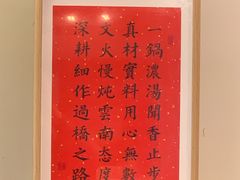 一鍋濃湯聞香止步
真材實料用心無數
文火慢炖雲南态度
深耕細作過橋之路